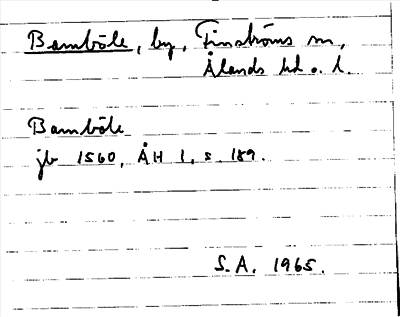 Bamböle, by, Finströms sn,
Ålands hd o. l.
Bamböle
jb 1560, ÅH 1, s. 189.
S.A. 1965.